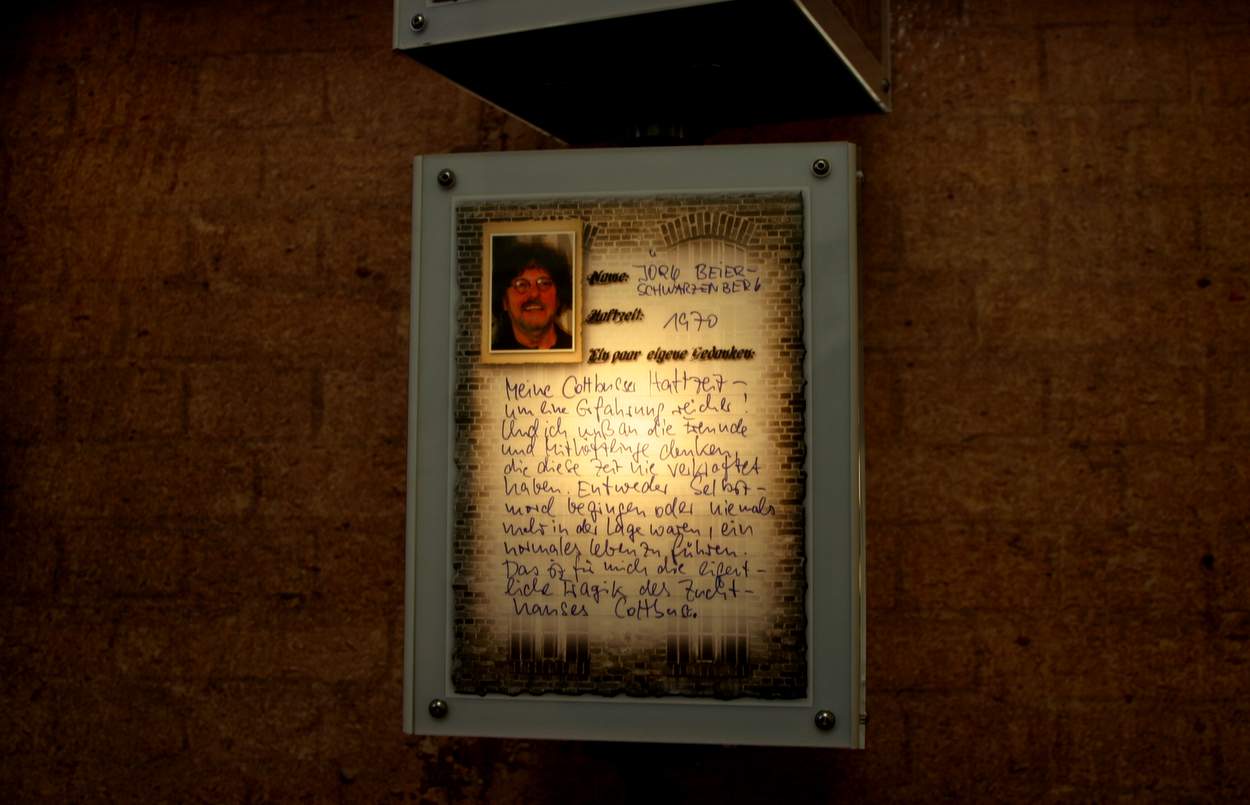 Name: JÖRG BEIER-
SCHWARZENBERG
Haftzeit: 1970
Ein paar eigene Gedanken:
Meine Cottbuser Haftzeit –
um eine Erfahrung reicher!
Und ich muß an die Freunde
und Mithäftlinge denken,
die diese Zeit nie verkraftet
haben. Entweder Selbst-
mord begingen oder niemals
mehr in der Lage waren, ein
normales Leben zu führen.
Das ist für mich die eigent-
liche Tragik des Zucht-
hauses Cottbus.